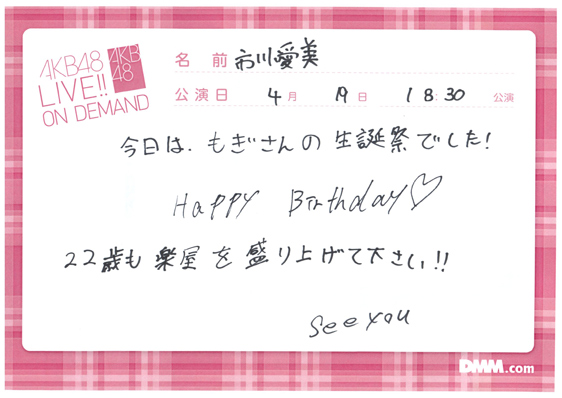 AKB48
LIVE!!
ON DEMAND
AKB
48
名前 市川愛美
公演日 4月 19日 18:30 公演
今日は、もぎさんの生誕祭でした!
HaPPY Birthday♡
22歳も楽屋を盛り上げて下さい!!
see you
DMM.com